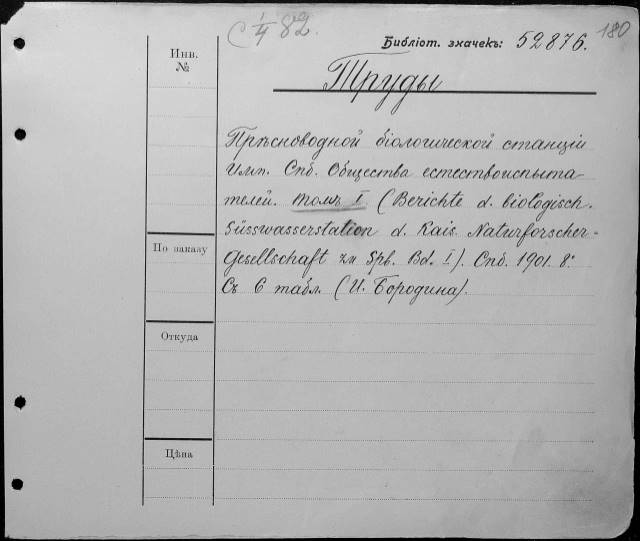 С 1/4 82.
180
Библіот. значекъ: 52876.
Инв.
№
Труды
Прѣсноводной біологической станціи
Имп. Спб. Общества естествоиспыта-
телей. томъ I (Berichte d. biologisch.
Süsswasserstation d. Kais. Naturforscher-
Gesellschaft zu Spb. Bd. I). Спб. 1901. 8º.
Съ 6 табл. (И. Бородина).
По заказу
Откуда
Цѣна